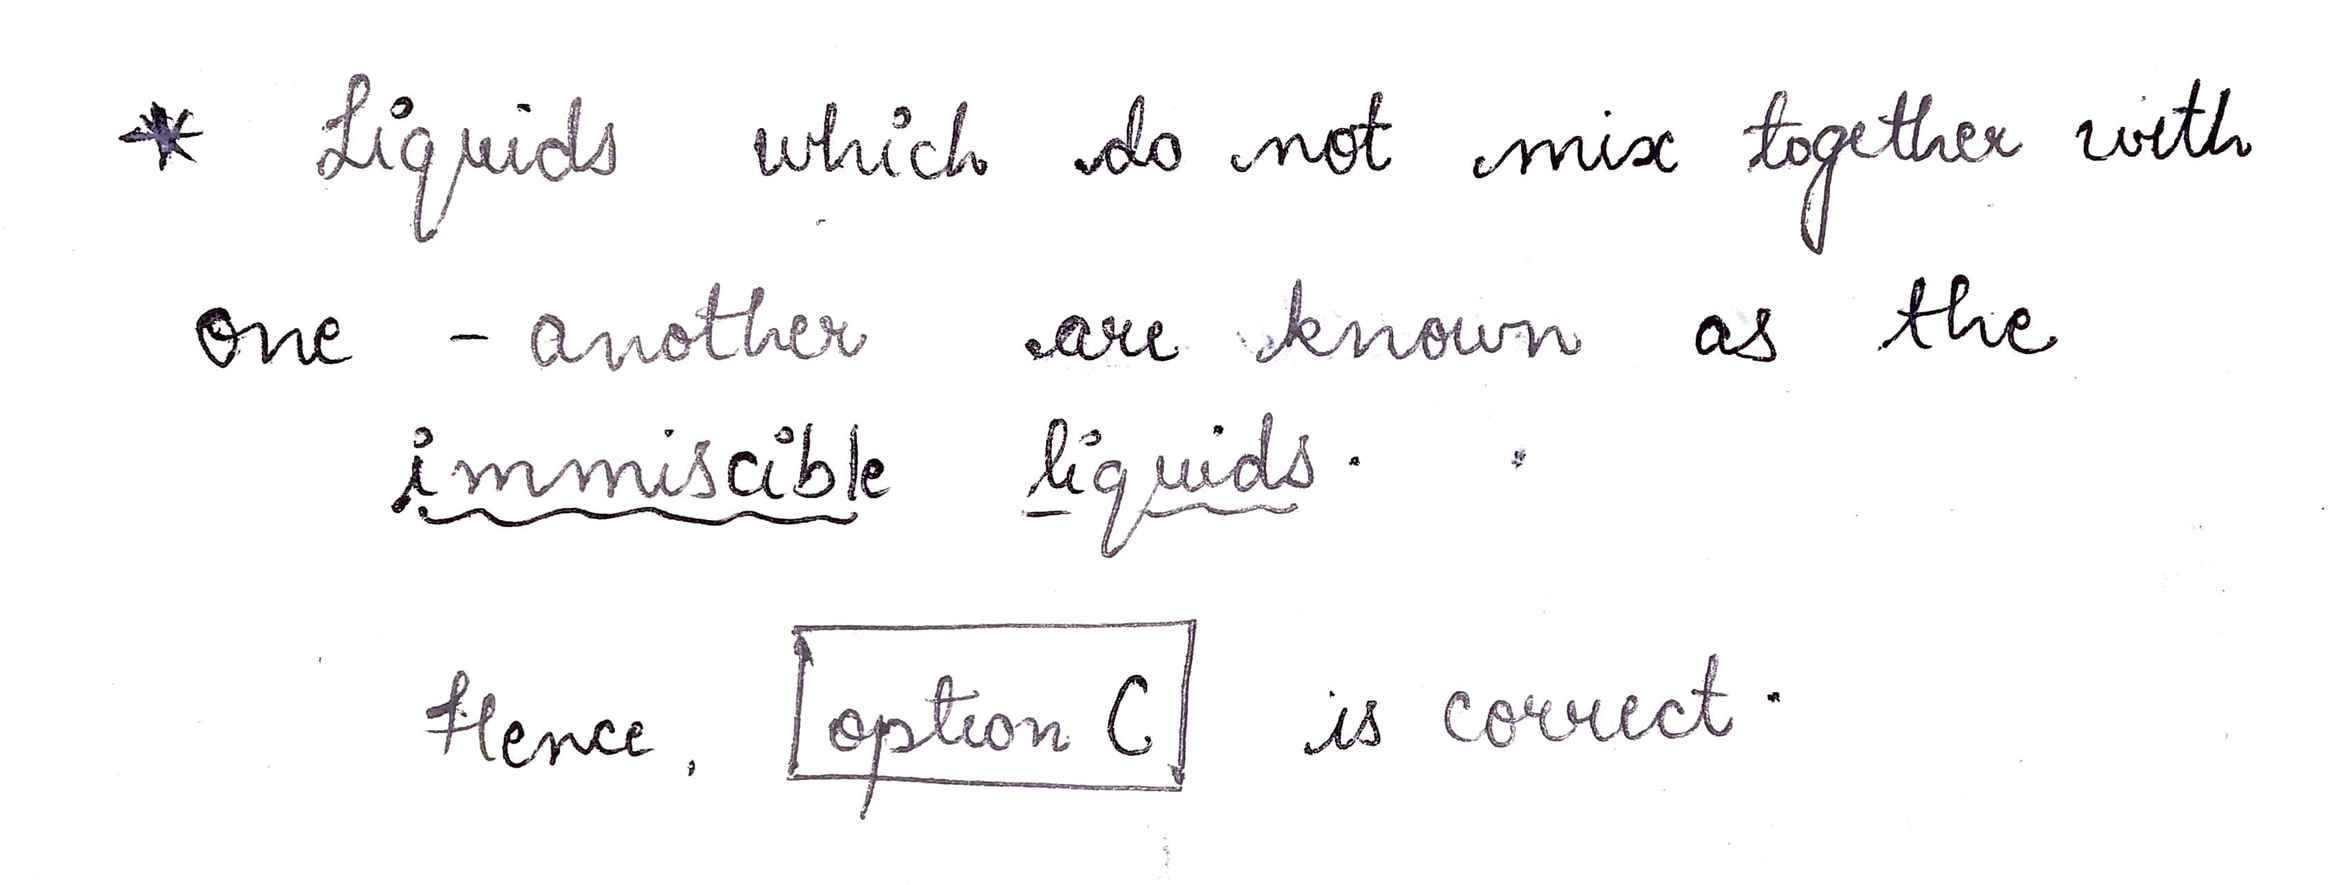 * Liquids which do not mix together with
one - another are known as the
immiscible liquids.
Hence, option C is correct.